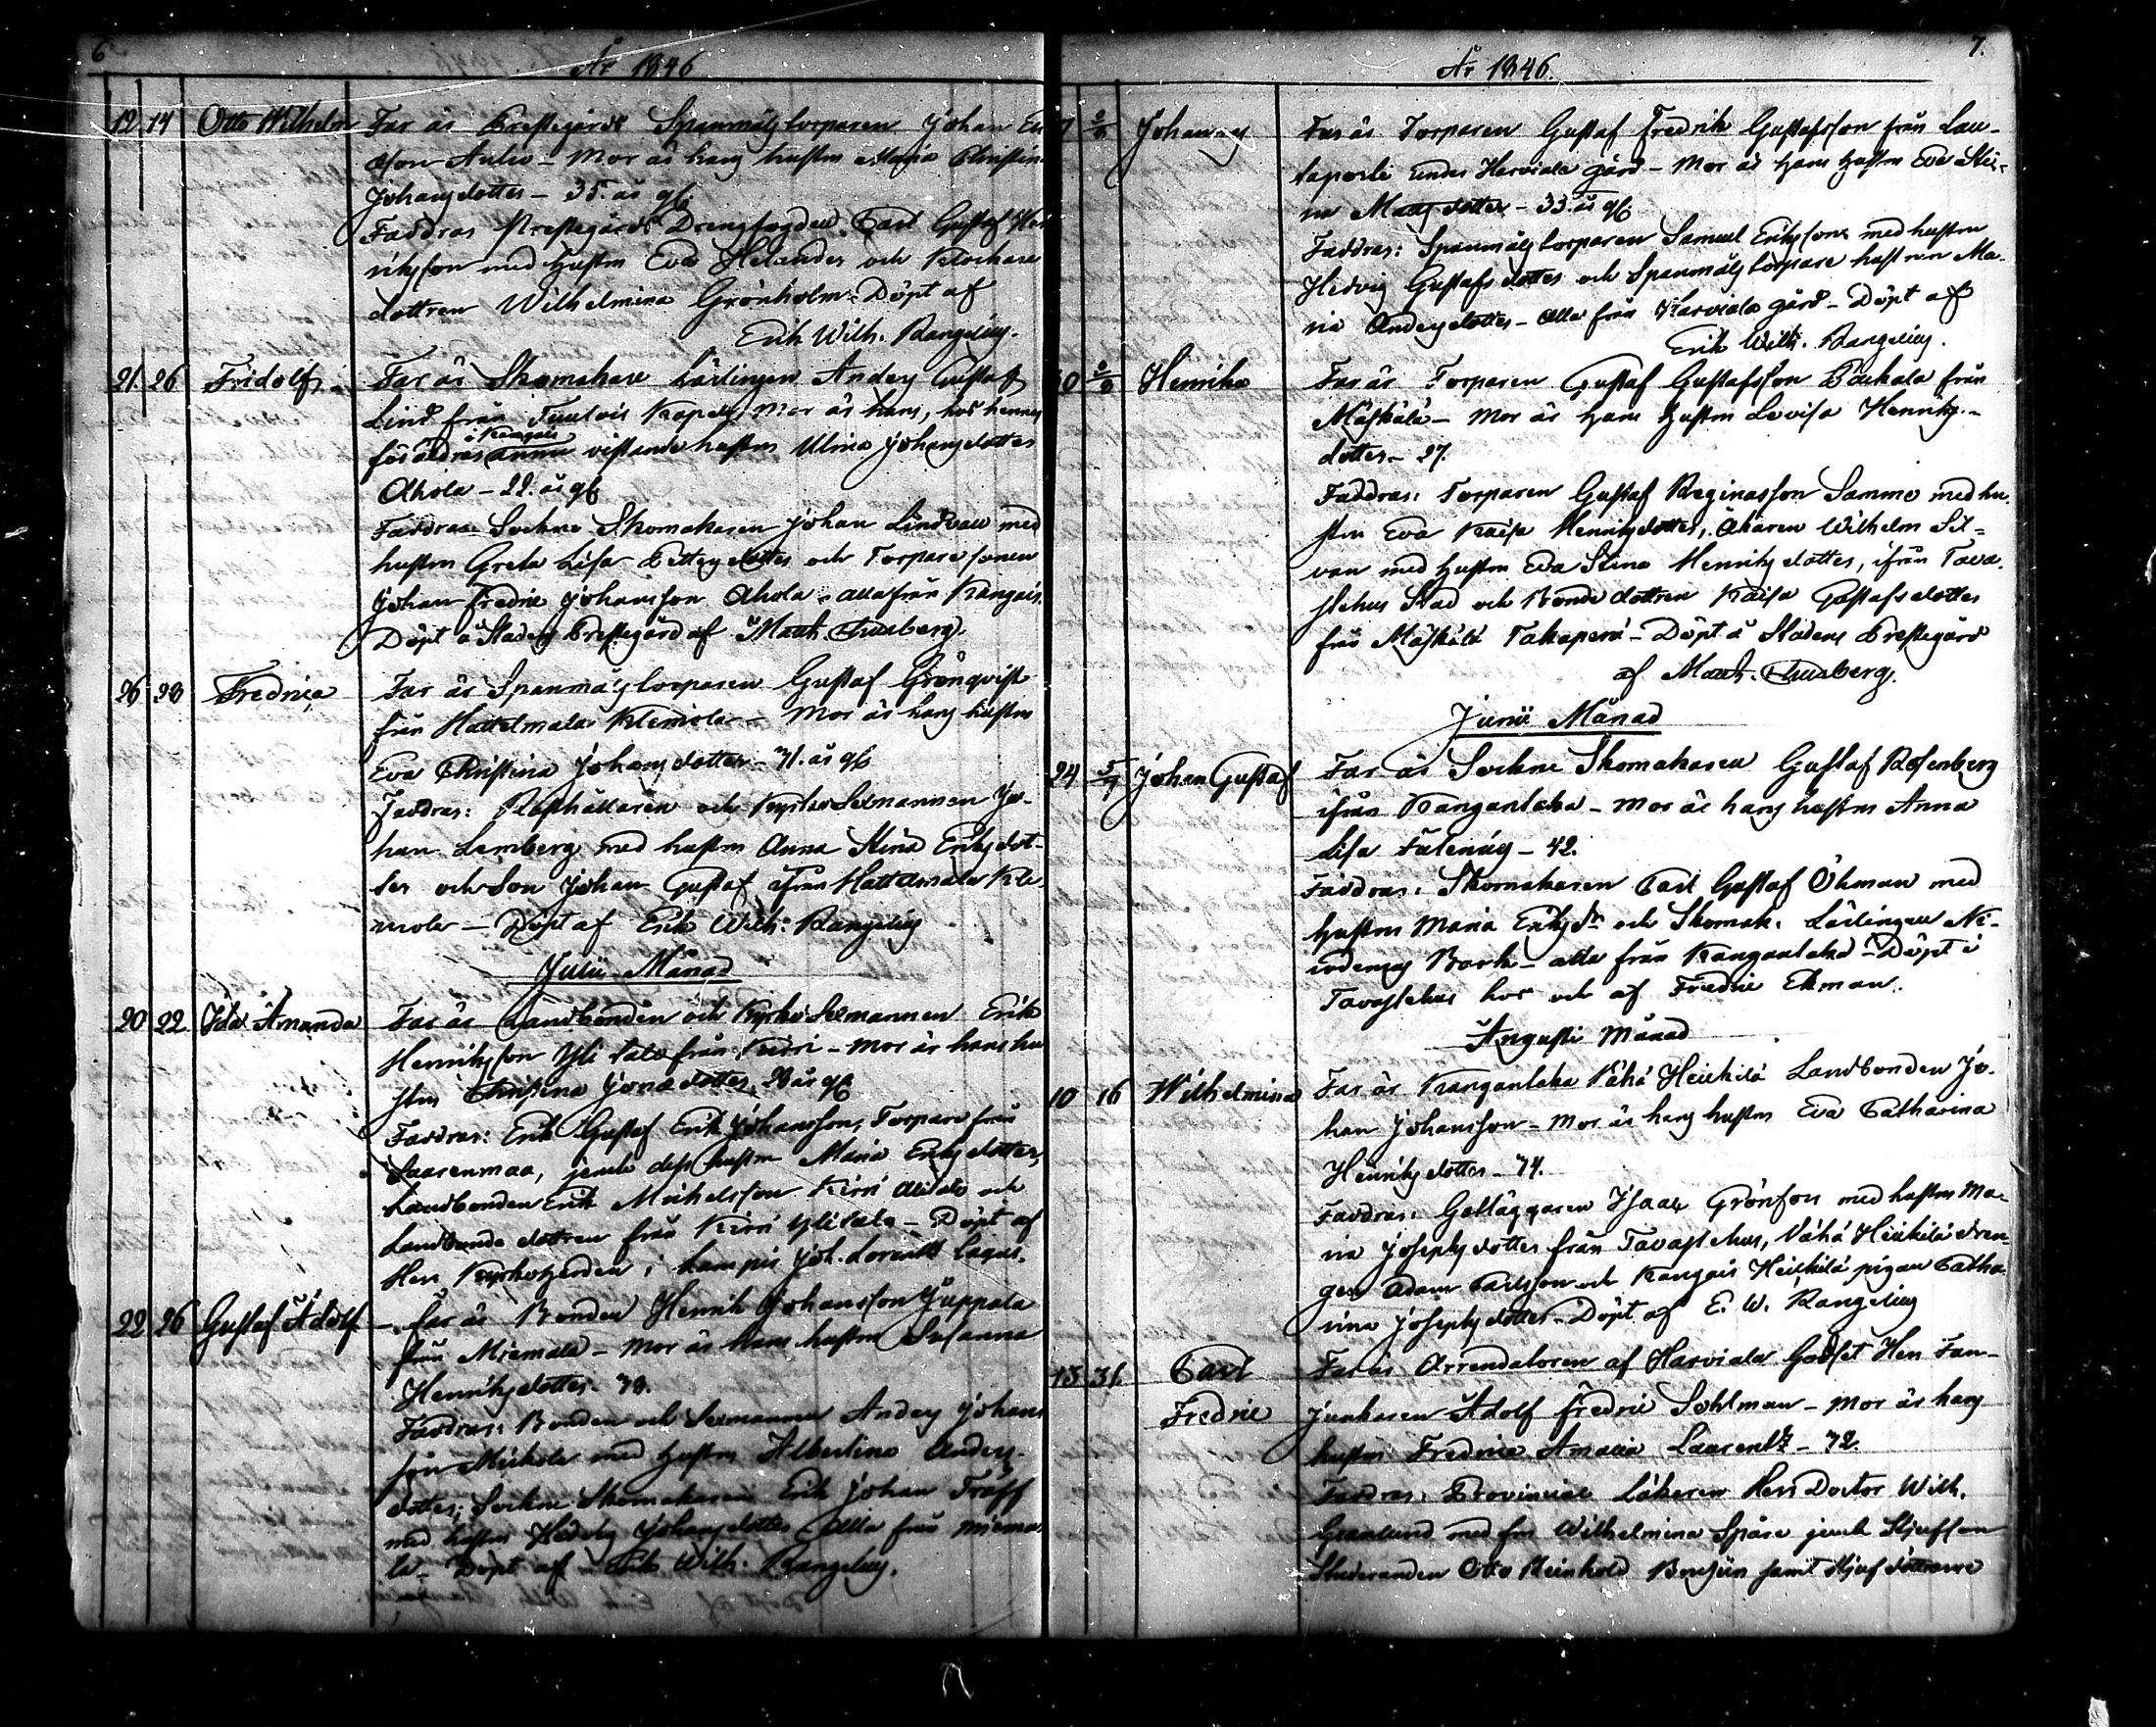 6
År 1846
12 14 Otto Wilhelm Far är Prestegårds Spanmålstorparen Johan
Mor är hans hustru Maria Christina
Johansdotter - 35. år gl.
Faddrar Prestegårds Drengfogden Carl Gustaf
med hustru Eva Helander och Klockare
dottren Wilhelmina Grönholm - Döpt af
Erik Wilh. Rangelius.
21. 26 Fridolf Far är Skomakare Lärlingen Anders Gustaf
Lind från Tuulois Kapell, Mor är hans, hos hennes
föräldrar vistande hustru Ulrica Johansdotter
Ahola - 22. år gl.
Faddrar Sockne Skomakaren Johan med
hustru Greta Lisa dotter och Torpare sonen
Johan Fredric Johansson Ahola - alla från Kangais.
Döpt å Stadens Prestegård af
26 28 Fredrica Far är Spanmålstorparen Gustaf Grönqvist
från Hattelmala Klemola - Mor är hans hustru
Eva Christina Johansdotter - 31. år gl
Faddrar: Rusthållaren och Kyrko Sexmannen Jo-
han Lemberg med hustru Anna Stina Eriksdot-
ter och Son Johan Gustaf ifrån Hattelmala Kle-
mola - Döpt af Erik Wilh: Rangelius
Månad
20 22 Ida Amanda Far är Landbonden och Kyrko Sexmannen Erik
Henriksson Yli från - Mor är hans hu
stru Christina dotter, 28 år gl
Faddrar: Erik Gustaf Erik Johansson, Torpare från
Saarenmaa, jemte dess hustru Maria Eriksdotter,
Landbonden Erik Michelsson och
Landbonde dottren från - Döpt af
Herr Kyrkoherden i Lampis Joh. Lagus.
22 26 Gustaf Adolf - Far är Bonden Henrik Johansson
från Miemala - Mor är hans hustru Susanna
Henriksdotter
Faddrar: Bonden och Sexmannen Anders Johans
son med hustru Albertina Anders-
dotter; Sockne Skomakaren Erik Johan Träff
med hustru Hedvig Johansdotter - Alla från Miema
la - Döpt af Erik Wilh. Rangelius.
7.
År 1846.
Johannes Far är Torparen Gustaf Fredrik Gustafsson från Lau-
taporti under Harviala gård - Mor är hans hustru Eva Sti-
na Mattsdotter - 33. år gl.
Faddrar: Spanmålstorparen Samuel Eriksson med hustru
Hedvig Gustafsdotter och Spanmålstorpare hustrun Ma-
ria Andersdotter - Alla från Harviala gård - Döpt af
Erik Wilh. Rangelius.
Henrika Far är Torparen Gustaf Gustafsson från
Mäskälä - Mor är hans hustru Lovisa Henriks-
dotter - 27.
Faddrar: Torparen Gustaf Reginasson Sammo med hu-
stru Eva Kaisa Henriksdotter, Åkaren Wilhelm Sil-
van med hustru Eva Stina Henriksdotter, ifrån Tava-
stehus Stad och Bonde dottren Kaisa Gustafsdotter
från Mäskälä Takaperä - Döpt å Stadens Prestegård
af
Junii Månad
24 5/7 Johan Gustaf Far är Sockne Skomakaren Gustaf Rosenberg
ifrån Kanganlaka - Mor är hans hustru Anna
Lisa - 42.
Faddrar: Skomakaren Carl Gustaf Öhman med
hustru Maria Eriksdr och Skomak. Lärlingen Ni-
codemus - alla från Kanganlaka - Döpt i
Tavastehus hos och af Fredric Ekman.
Augusti Månad
10 16 Wilhelmina Far är Kanganlaka Vähä Heikkilä Landbonden Jo-
han Johansson - Mor är hans hustru Eva Catharina
Henriksdotter - 44.
Faddrar: Isaac Grönfors med hustru Ma-
ria Josephsdotter från Tavastehus, Vähä Heikkilä dren-
gen Adam Carlsson och Kangais Heikkilä pigan Catha-
rina Josephsdotter - Döpt af E. W. Rangelius
13 31. Carl Fredric Far är Arrendatoren af Harviala Godset Herr Fan-
junkaren Adolf Fredric Sohlman - Mor är hans
hustru Fredrica Amalia Laurentz - 42.
Faddrar: Provincial Läkaren Herr Doctor Wilh.
Granlund med fru Wilhelmina Spåre jemte Stjufson
Studeranden Otto Reinhold samt Stjufdöttrarne